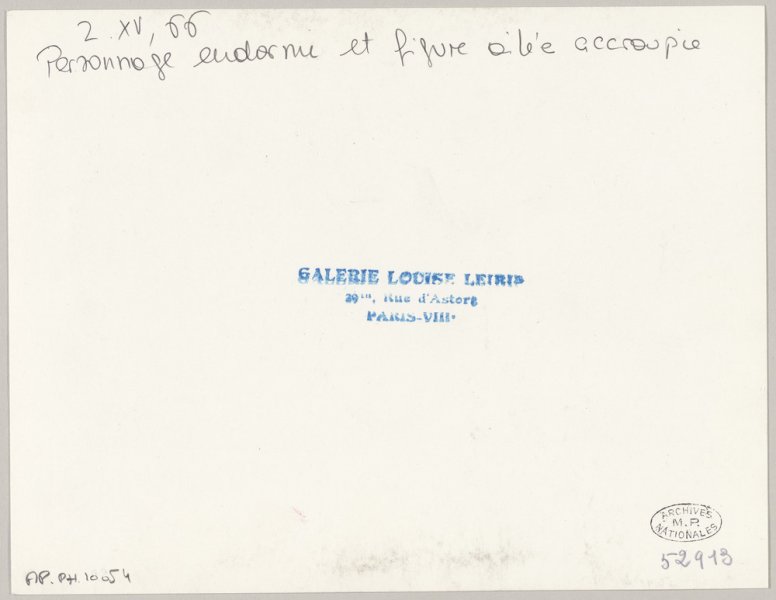 2 XV, 66
Personnage endormi et figure ailée accroupie
GALERIE LOUISE LEIRIS
29bis, Rue d'Astorg
PARIS-VIIIe
ARCHIVES
M.P.
NATIONALES
52913
AP.PH.10054